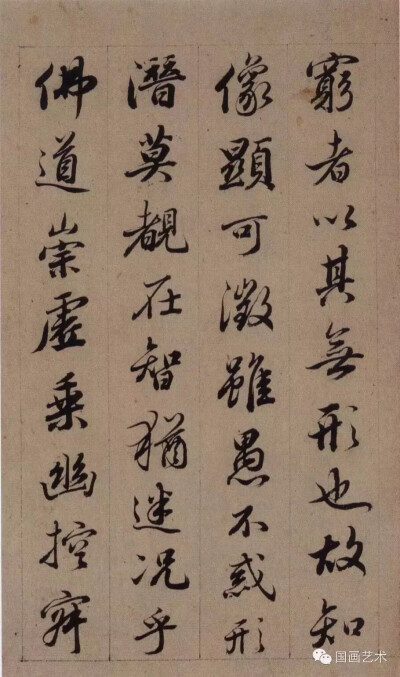 窮者以其無形也故知
像顯可徵雖愚不惑形
潛莫覩在智猶迷况乎
佛道崇虛乗幽控寂
国画艺术